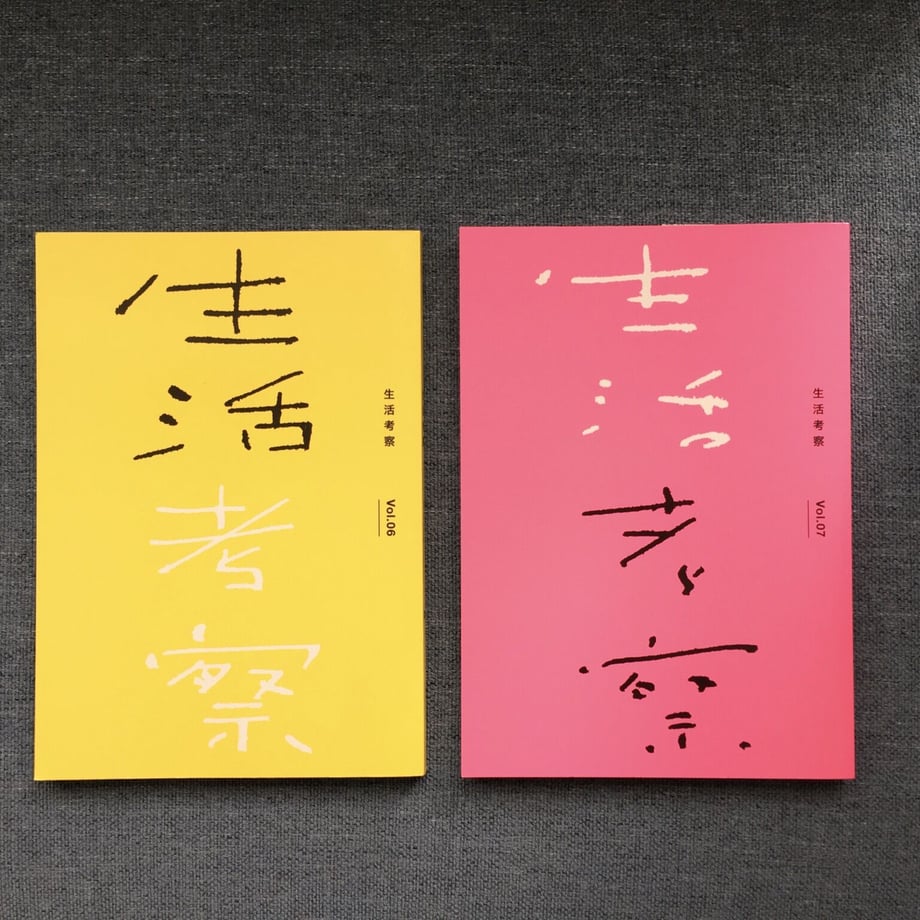 生活考察
生活考察
Vol.06
生活考察
生活考察
Vol.07